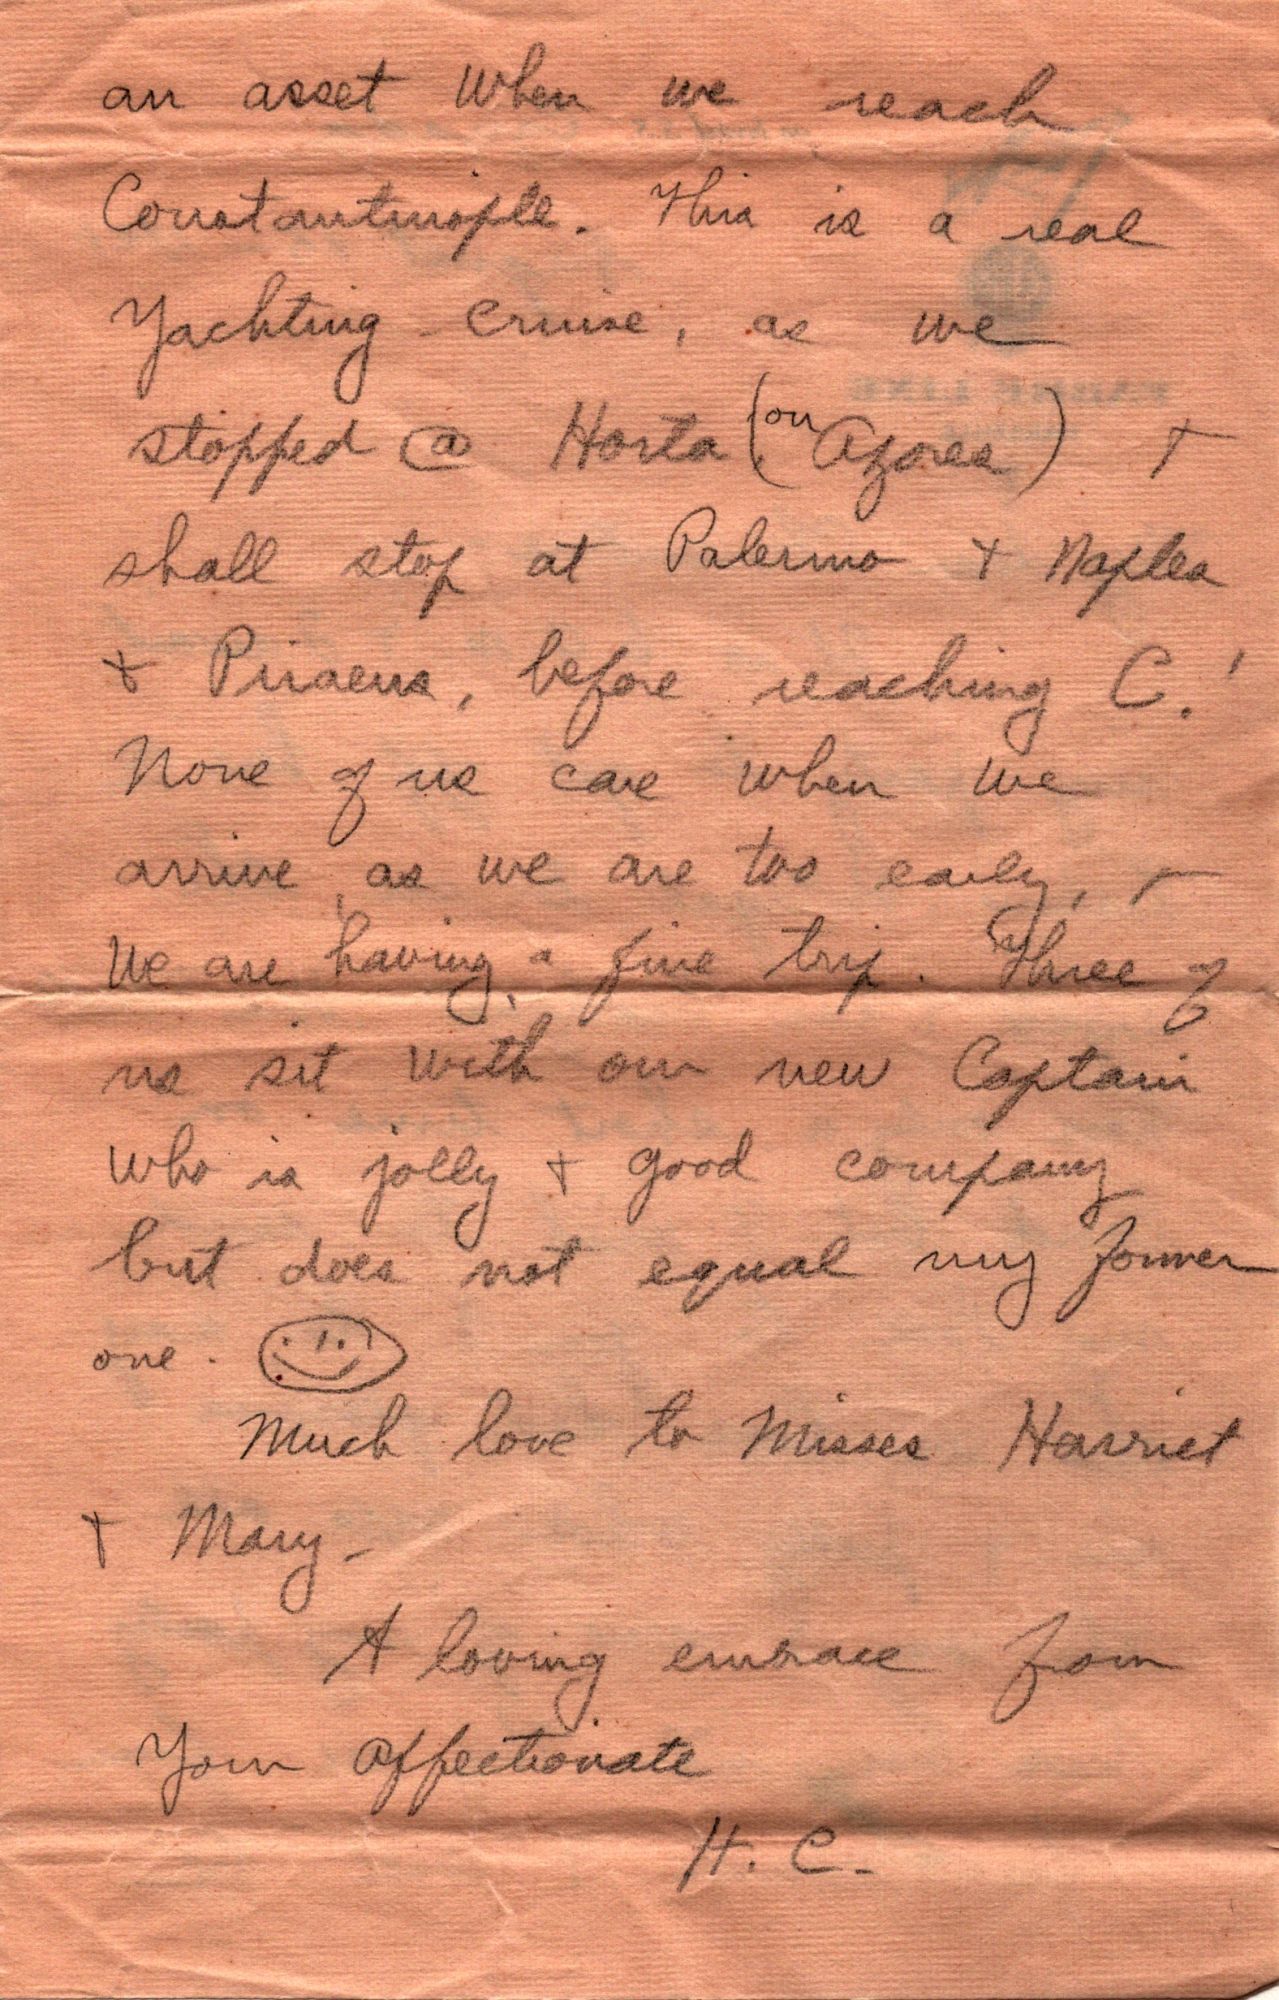 an asset when we reach
Constantinople. This is a real
Yachting - cruise, as we
stopped @ Horta (on Azores) +
shall stop at Palermo + Naples
+ Piraeus, before reaching C.!
None of us care when we
arrive, as we are too early, -
We are having a fine trip. Three of
us sit with our new Captain
who is jolly + good company
but does not equal my former
one.
Much love to Misses Harriet
+ Mary -
A loving embrace from
Your affectionate
H. C. -